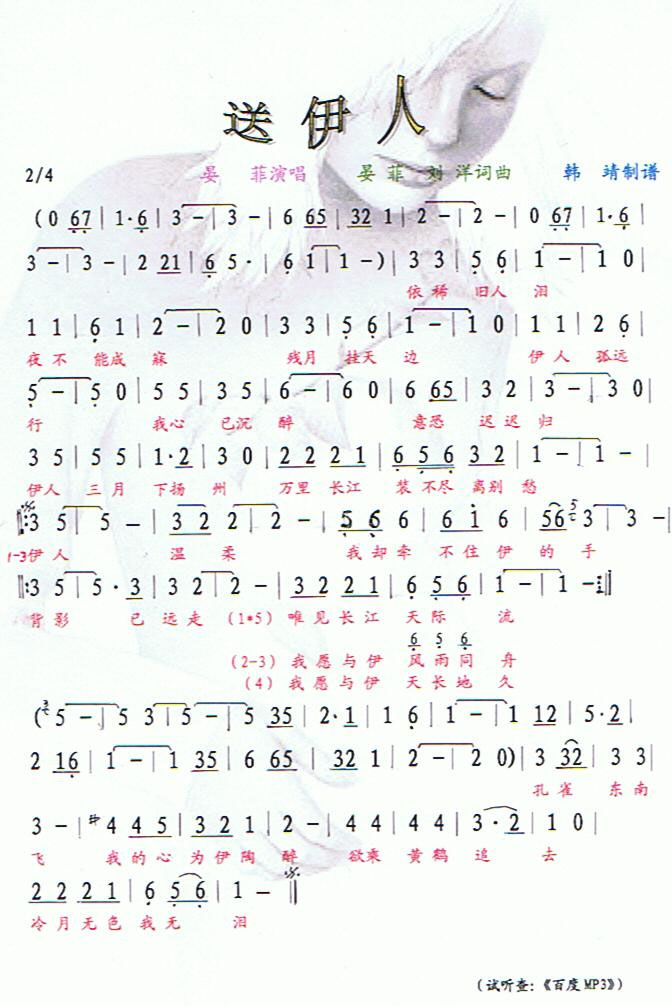 送伊人
2/4 晏 菲演唱 晏 菲 刘 洋词曲 韩 靖制谱
(0 67 | 1·6 | 3 - | 3 - | 6 65 | 32 1 | 2 - | 2 - | 0 67 | 1·6 |
3 - | 3 - | 2 21 | 6 5· | 6 1 | 1 -) | 3 3 | 5 6 | 1 - | 1 0 |
依稀 旧人 泪
1 1 | 6 1 | 2 - | 2 0 | 3 3 | 5 6 | 1 - | 1 0 | 1 1 | 2 6 |
夜不 能成 寐 残月 挂天 边 伊人 孤远
5 - | 5 0 | 5 5 | 3 5 | 6 - | 6 0 | 6 65 | 3 2 | 3 - | 3 0 |
行 我心 已沉 醉 意恐 迟迟 归
3 5 | 5 5 | 1·2 | 3 0 | 2 2 2 1 | 6 5 6 3 2 | 1 - | 1 - |
伊人 三月 下扬 州 万里 长江 装不尽 离别 愁
‖:3 5 | 5 - | 3 2 2 | 2 - | 5 6 6 | 6 i 6 | 56 3 | 3 - |
1-3伊人 温柔 我却牵 不住伊 的手
‖:3 5 | 5 · 3 | 3 2 | 2 - | 3 2 2 1 | 6 5 6 | 1 - | 1 -:‖
背影 已远走 (1*5) 唯见长江 天际 流
6 5 6
(2-3) 我愿与伊 风雨同 舟
(4) 我愿与伊 天长地 久
(5 - | 5 3 | 5 - | 5 35 | 2·1 | 1 6 | 1 - | 1 12 | 5·2 |
2 16 | 1 - | 1 35 | 6 65 | 32 1 | 2 - | 2 0) | 3 32 | 3 3 |
孔雀 东南
3 - | #4 4 5 | 3 2 1 | 2 - | 4 4 | 4 4 | 3·2 | 1 0 |
飞 我的心 为伊陶 醉 欲乘 黄鹤 追 去
2 2 2 1 | 6 5 6 | 1 - ‖
冷月无色 我无 泪
(试听查:《百度MP3》)